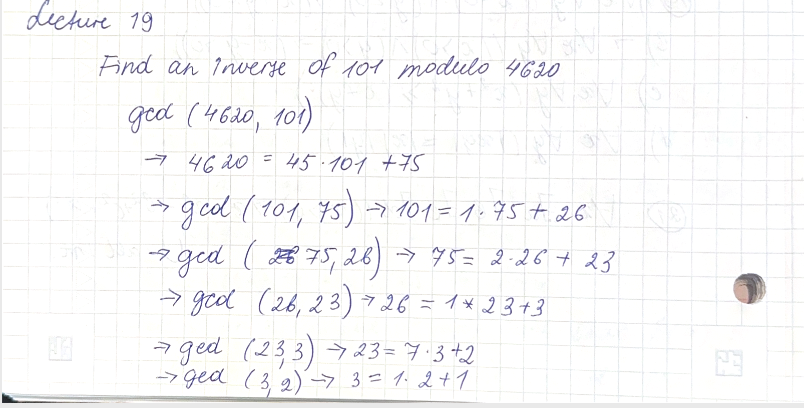 Lecture 19
Find an inverse of 101 modulo 4620
gcd (4620, 101)
→ 4620 = 45·101 +75
→ gcd (101, 75) → 101 = 1·75 + 26
→ gcd (75, 26) → 75 = 2·26 + 23
→ gcd (26, 23) → 26 = 1*23+3
→ gcd (23,3) → 23 = 7·3+2
→ gcd (3,2) → 3 = 1·2+1